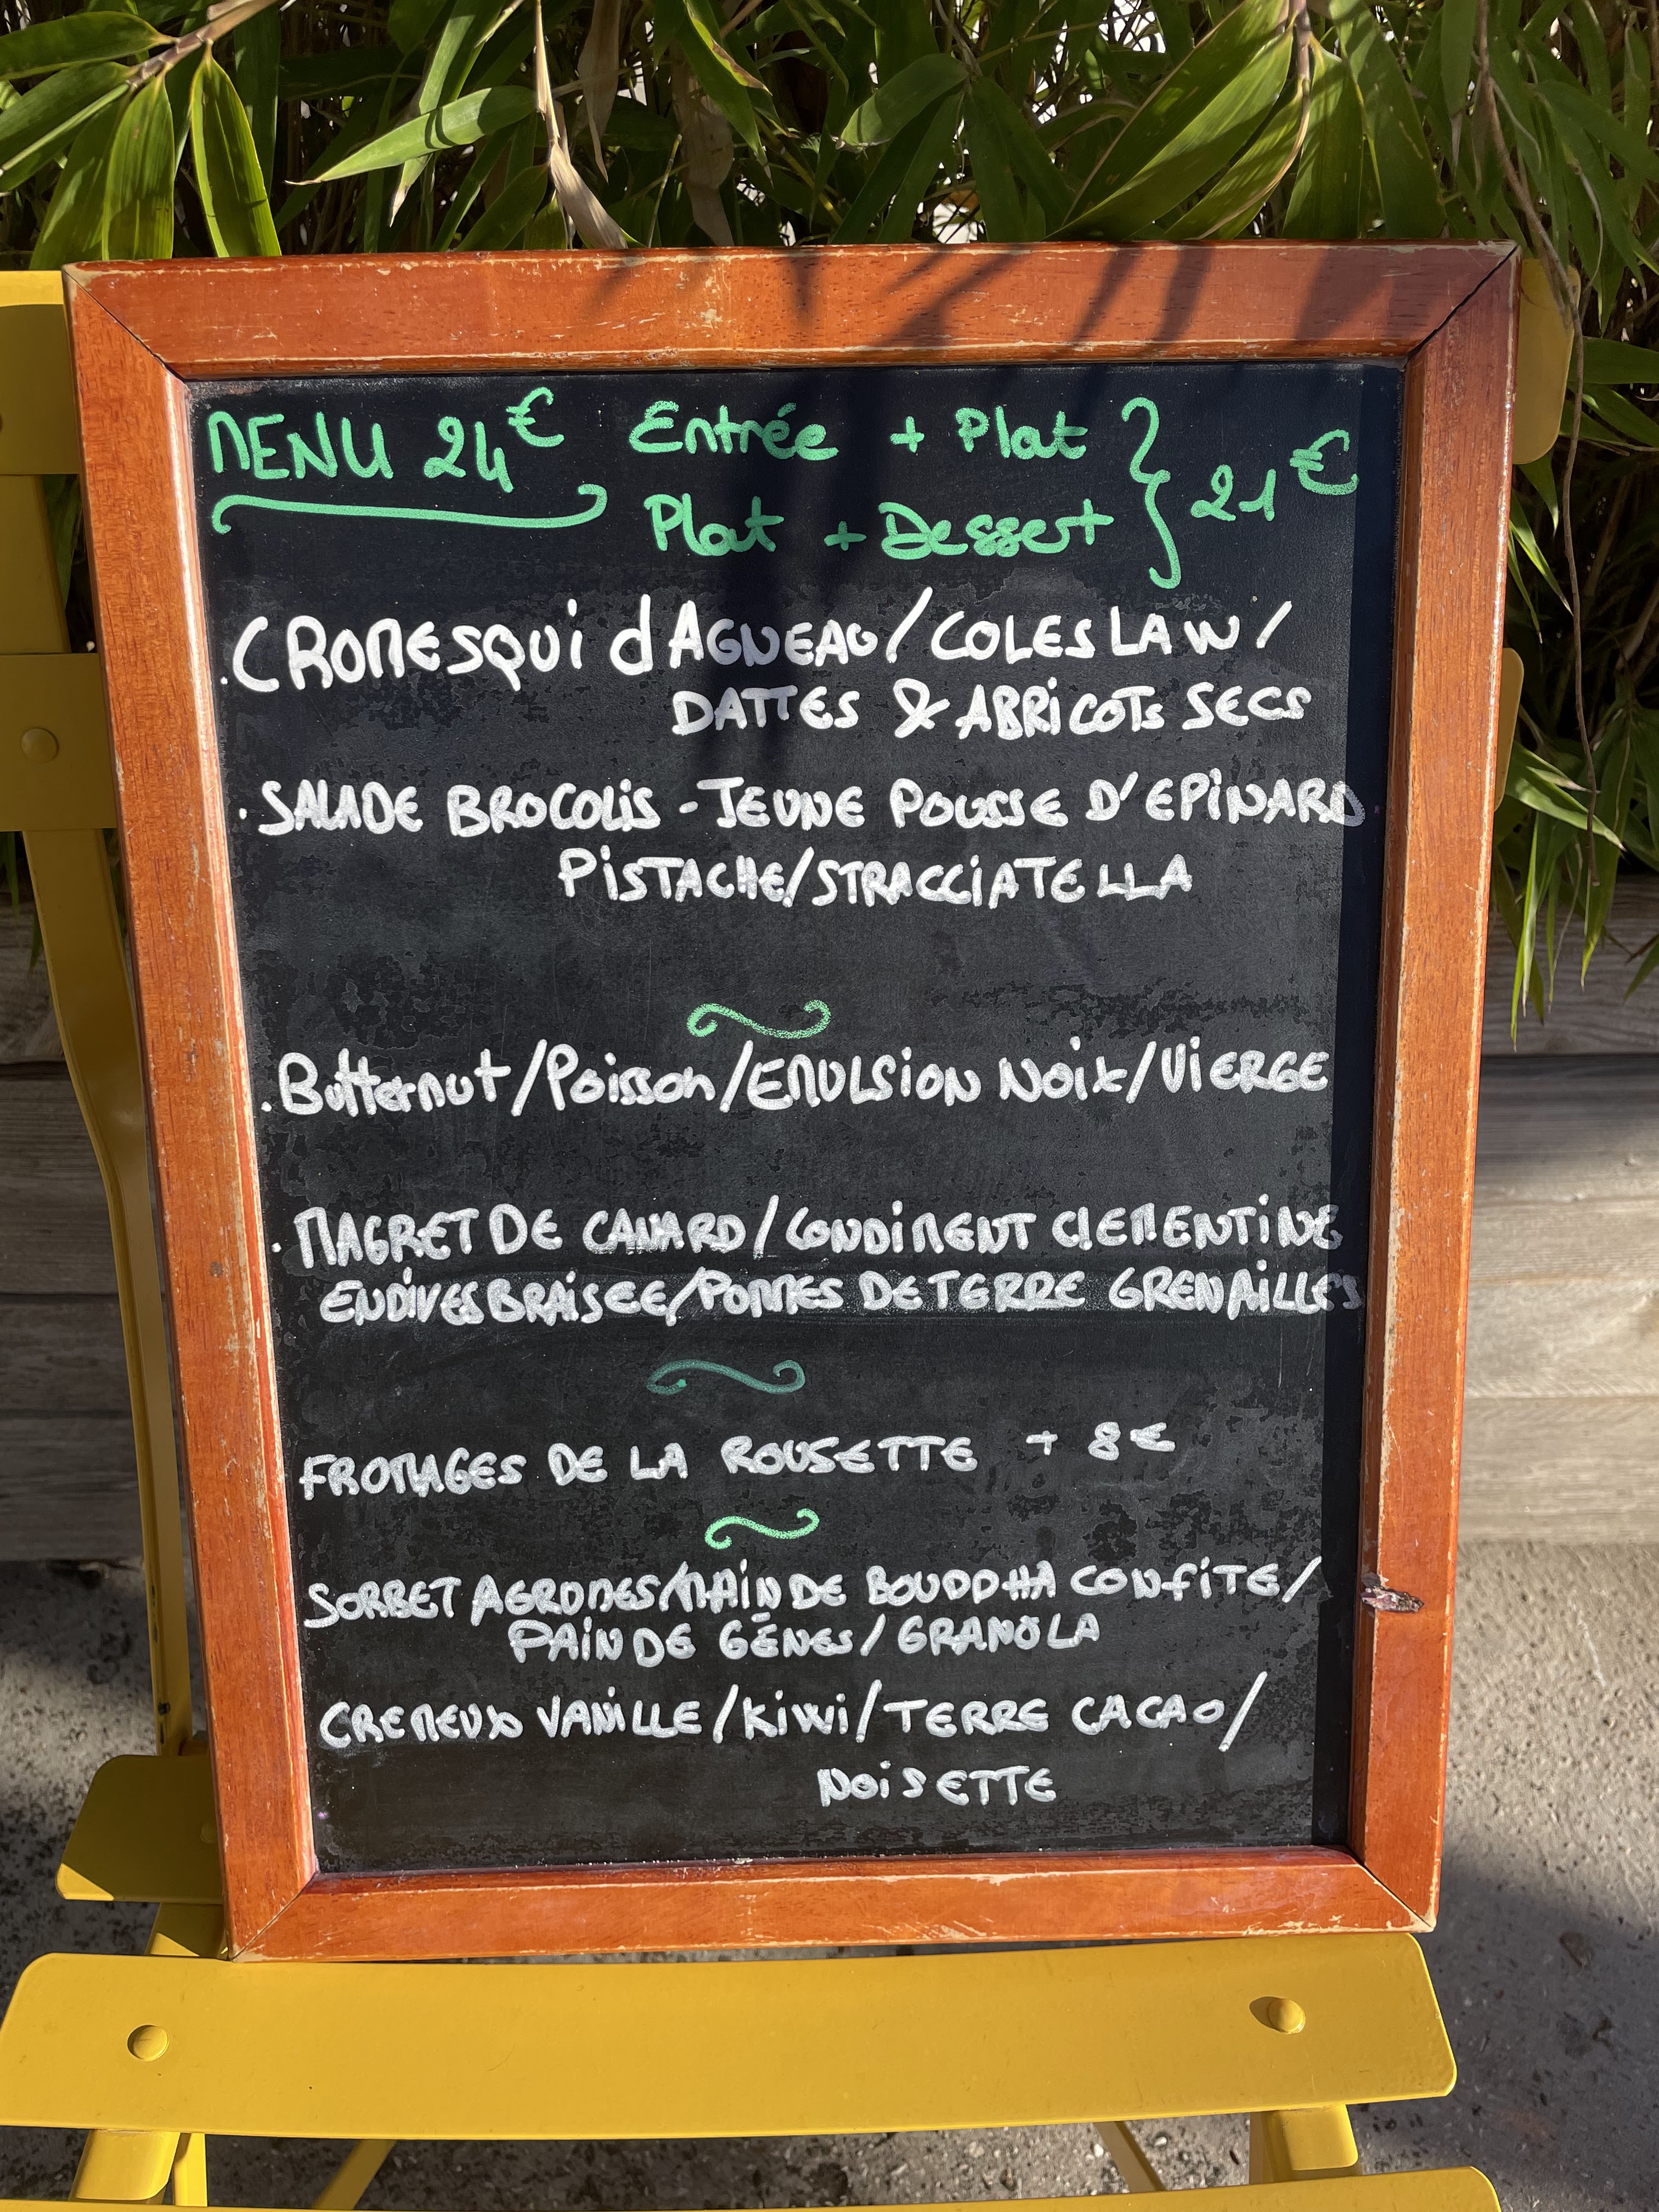 MENU 24€ Entrée + Plat
Plat + Dessert } 21€
. CROMESQUI d AGNEAU / COLESLAW /
DATTES & ABRICOTS SECS
. SALADE BROCOLIS - JEUNE POUSSE D'EPINARD
PISTACHE/STRACCIATELLA
. Butternut/Poisson/EMULSION NOIX/VIERGE
. MAGRET DE CANARD / CONDIMENT CLEMENTINE
ENDIVES BRAISEE/POMMES DE TERRE GRENAILLES
FROMAGES DE LA ROUSETTE + 8€
SORBET AGRUMES/MAIN DE BOUDDHA CONFITE/
PAIN DE GÊNES/GRANOLA
CREMEUX VANILLE/KIWI/TERRE CACAO/
NOISETTE